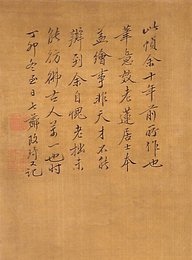 此幀余十年前所作也
筆意效老蓮居士
蓋繪事非天才不能
到余自愧老拙未
能彷彿古人萬一也時
丁卯冬至日七薌改琦又記